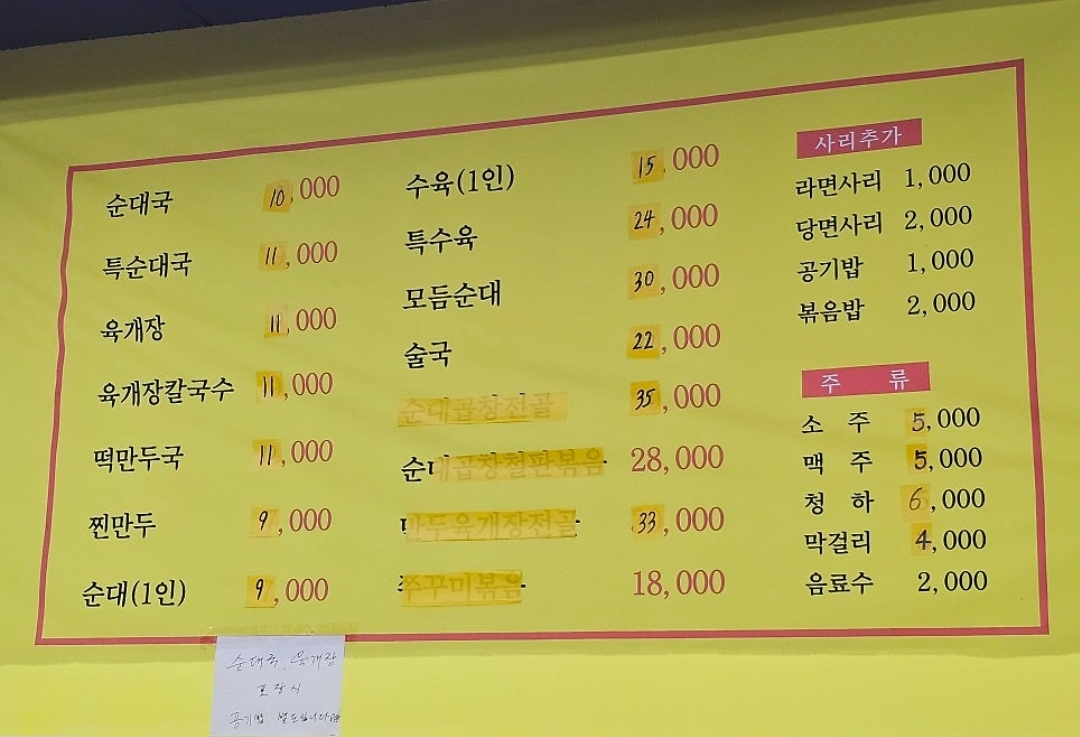 순대국 10,000
특순대국 11,000
육개장 11,000
육개장칼국수 11,000
떡만두국 11,000
찐만두 9,000
순대(1인) 9,000
수육(1인) 15,000
특수육 24,000
모듬순대 30,000
술국 22,000
순대곱창전골 35,000
순대곱창철판볶음 28,000
만두육개장전골 33,000
쭈꾸미볶음 18,000
사리추가
라면사리 1,000
당면사리 2,000
공기밥 1,000
볶음밥 2,000
주 류
소 주 5,000
맥 주 5,000
청 하 6,000
막걸리 4,000
음료수 2,000
순대국, 육개장
포장시
공기밥 별도입니다